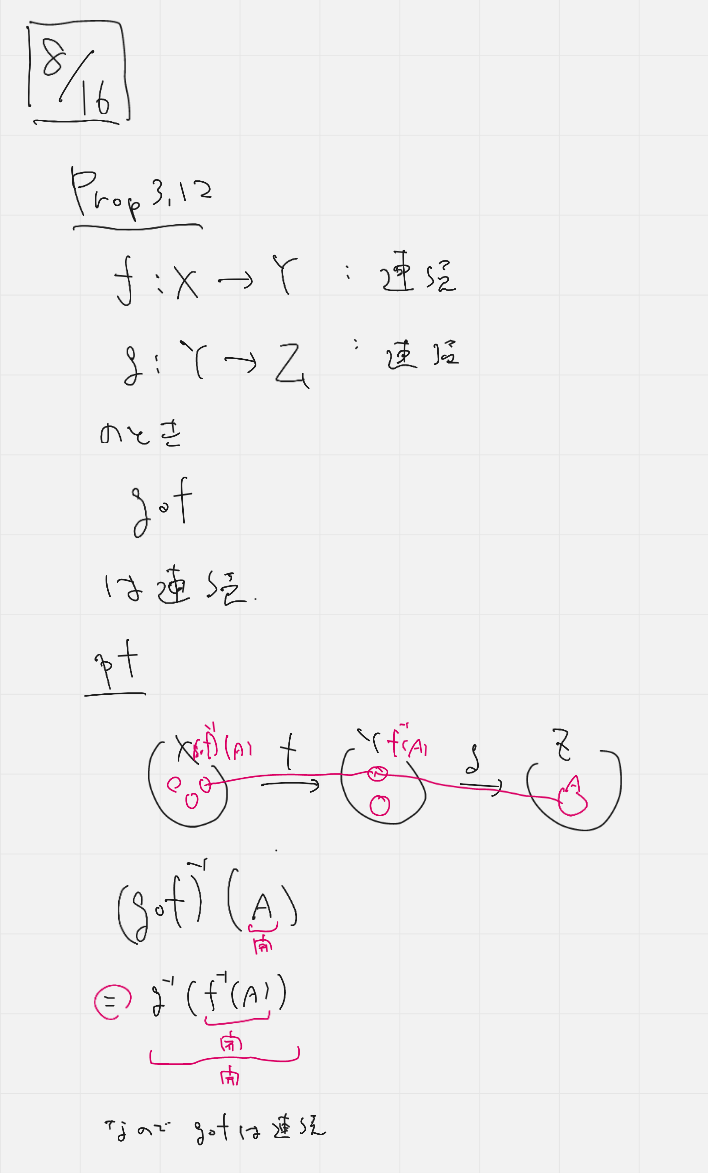 8/16
Prop 3.12
f : X → Y : 連続
g : Y → Z : 連続
のとき
g∘f
は連続.
pf
X (g∘f)⁻¹(A) f Y f⁻¹(A) g Z
A
(g∘f)⁻¹(A)
開
= g⁻¹(f⁻¹(A))
開
開
なので g∘fは連続